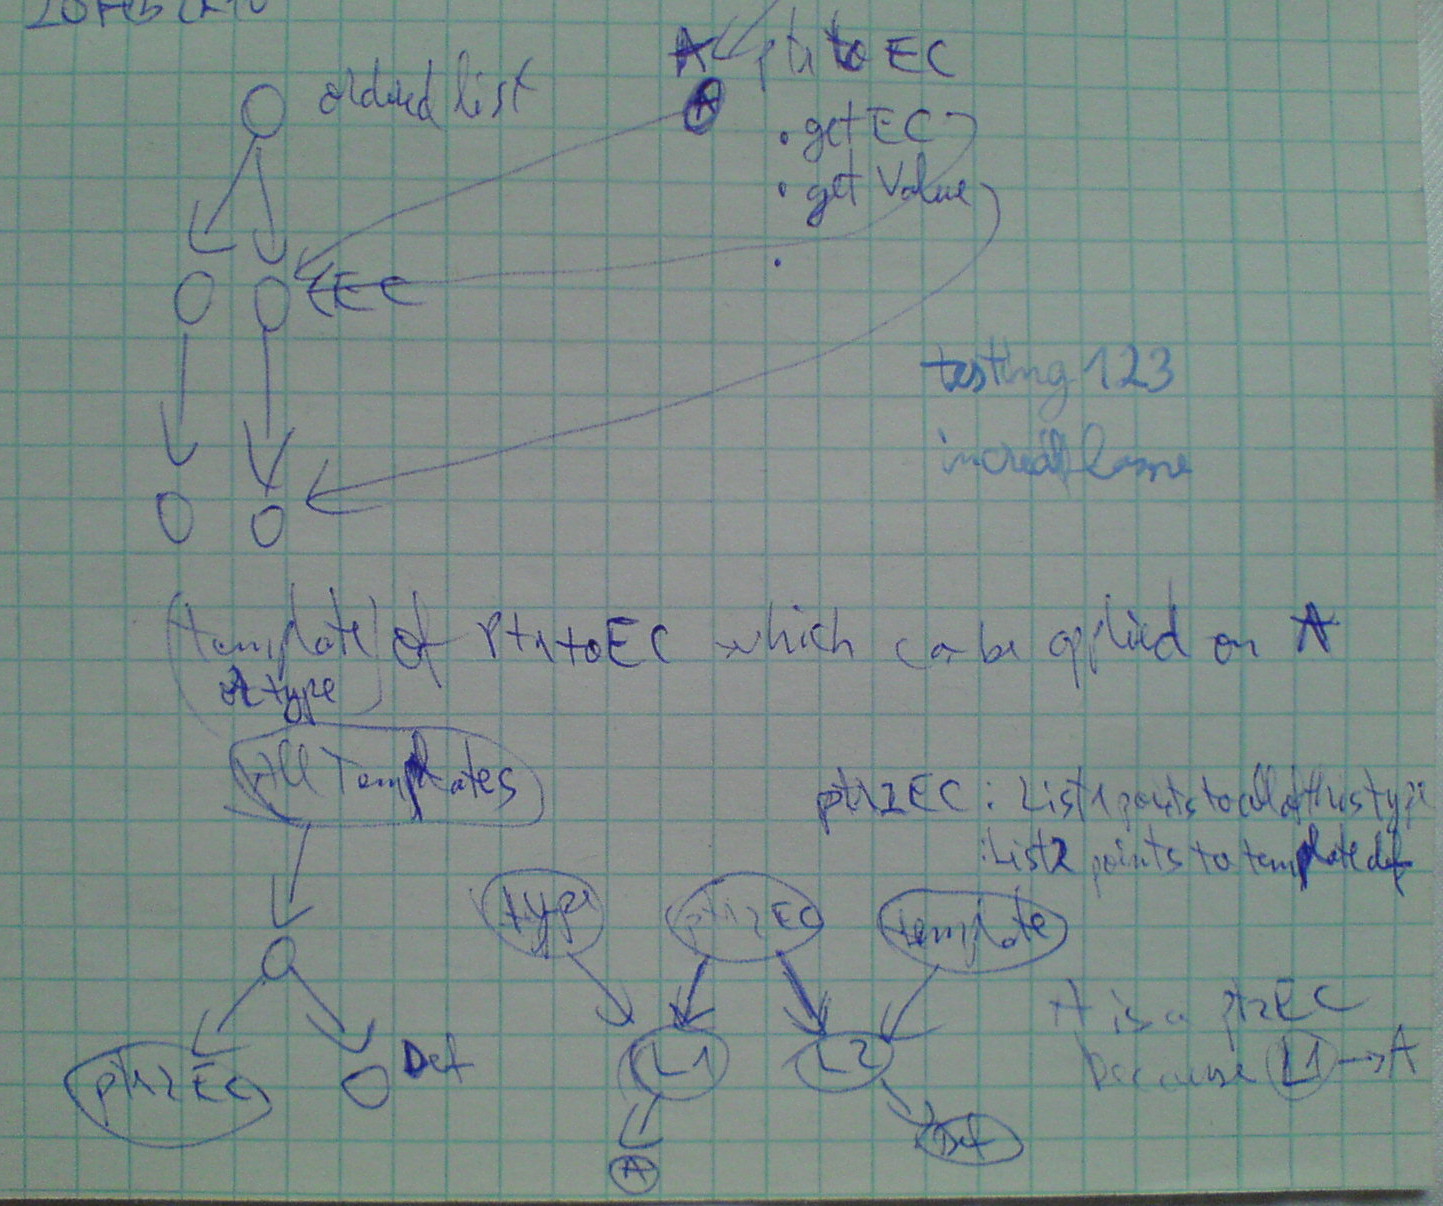 ordered list
A ptr to EC
A
• getEC
• get Value
•
EC
testing 123
template of ptr to EC which can be applied on A
A type
All Templates
ptr2EC : List1 points to all of this type
: List2 points to template def
type
ptr2EC
template
L1
L2
A
Def
ptr2EC
Def
A is a ptr2EC
because L1 → A